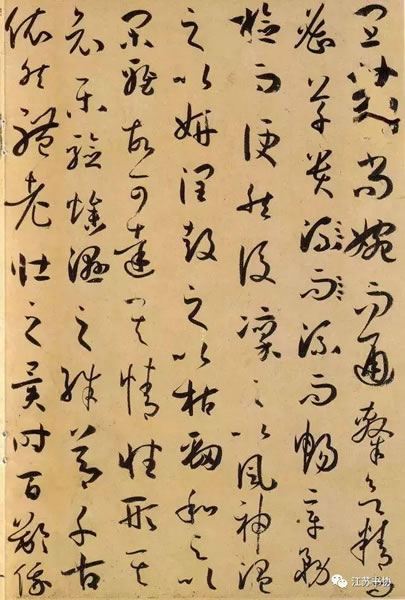 宜篆尚婉而通隸欲精而
密草貴流而流而暢章務
檢而便然後凜之以風神溫
之以妍潤鼓之以枯勁和之以
閑雅故可達其情性形其
哀樂驗燥濕之殊節千古
依然體老壯之異時百齡俄
江苏书协